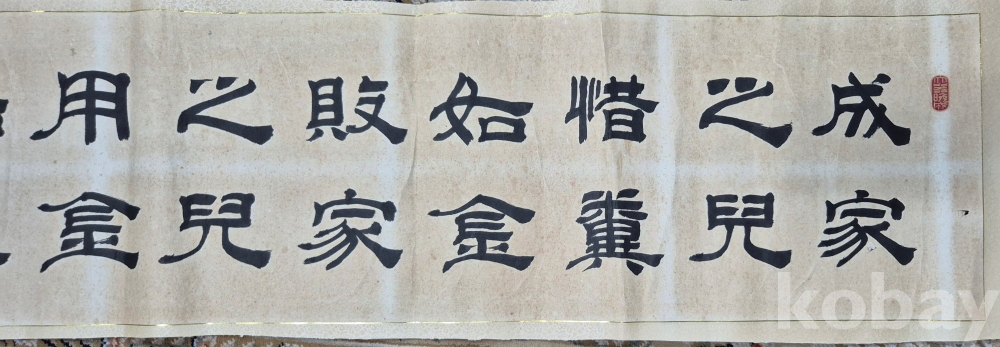 成家
之兒
惜糞
如金
敗家
之兒
用金
kobay